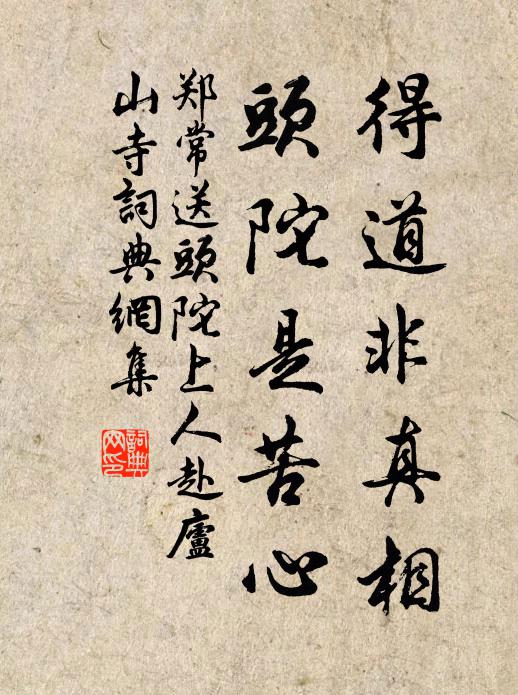 得道非真相
頭陀是苦心
郑常送頭陀上人赴廬
山寺詞典網集
詞典
网印